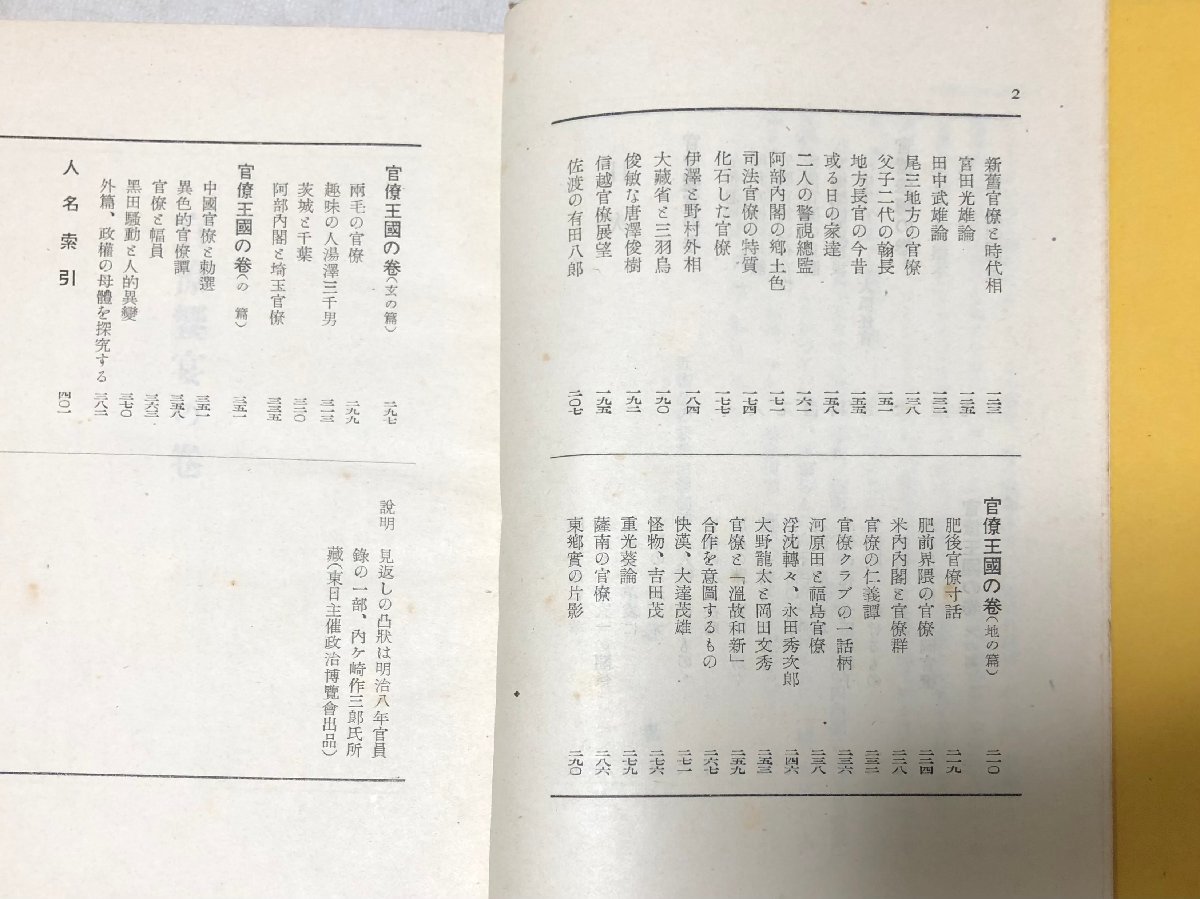 2
新舊官僚と時代相 一二三
宮田光雄論 一二五
田中武雄論 一三二
尾三地方の官僚 一三八
父子二代の翰長 一五一
地方長官の今昔 一五五
或る日の家達 一五八
二人の警視總監 一六一
阿部內閣の鄉土色 一七一
司法官僚の特質 一七四
化石した官僚 一七七
伊澤と野村外相 一八四
大藏省と三羽烏 一九〇
俊敏な唐澤俊樹 一九二
信越官僚展望 一九五
佐渡の有田八郎 二〇七
官僚王國の卷(地の篇) 二一〇
肥後官僚寸話 二一九
肥前界隈の官僚 二二四
米內內閣と官僚群 二二八
官僚の仁義譚 二三二
官僚クラブの一話柄 二三六
河原田と福島官僚 二三八
浮沈轉々、永田秀次郎 二四六
大野龍太と岡田文秀 二五三
官僚と「溫故和新」 二五九
合作を意圖するもの 二六七
快漢、大達茂雄 二七一
怪物、吉田茂 二七六
重光葵論 二七九
薩南の官僚 二八六
東鄉實の片影 二九〇
官僚王國の卷(玄の篇) 二九七
兩毛の官僚 二九九
趣味の人湯澤三千男 三一三
茨城と千葉 三二〇
阿部內閣と埼玉官僚 三三五
官僚王國の卷(の 篇) 三五一
中國官僚と勅選 三五一
異色的官僚譚 三五八
官僚と幅員 三六三
黑田騷動と人的異變 三七〇
外篇、政權の母體を探究する 三八二
人名索引 四〇一
說明 見返しの凸狀は明治八年官員
錄の一部、內ケ崎作三郎氏所
藏(東日主催政治博覽會出品)